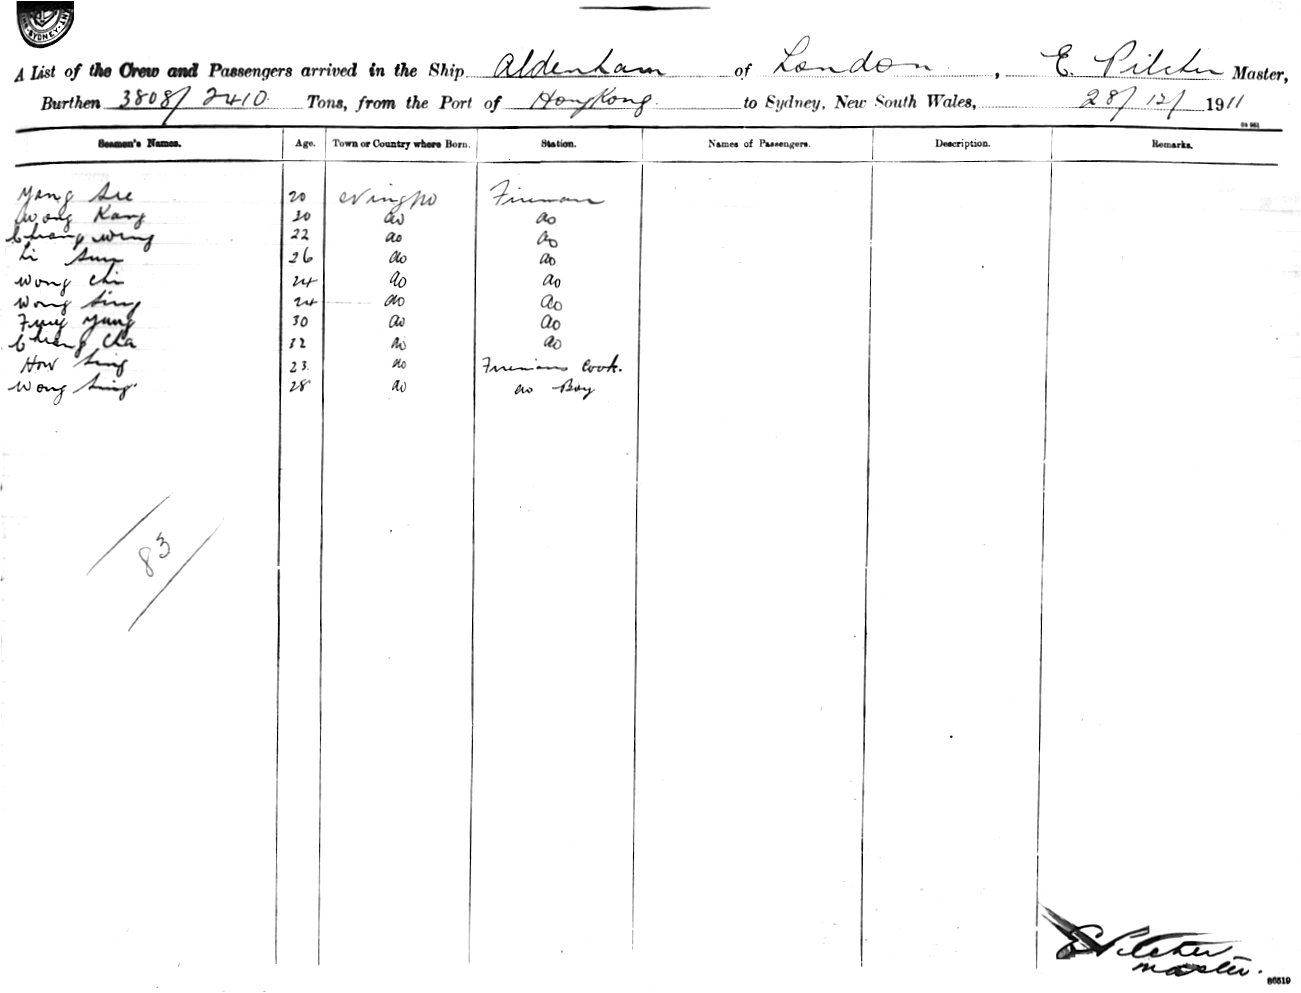 SYDNEY
A List of the Crew and Passengers arrived in the Ship Aldenham of London, E. Pilcher Master,
Burthen 3808/2410 Tons, from the Port of HongKong to Sydney, New South Wales, 28/12/1911
Seamen's Names. Age. Town or Country where Born. Station. Names of Passengers. Description. Remarks.
Yong See 20 Ningpo Fireman
Wong Kang 30 do do
Chang Wing 22 do do
Li Sun 26 do do
Wong Chi 24 do do
Wong Sing 24 do do
Yung 30 do do
Chang Cha 32 do do
How Sing 23 do Firemans Cook.
Wong Sing 28 do do Boy
83
E Pilcher
Master.
86519